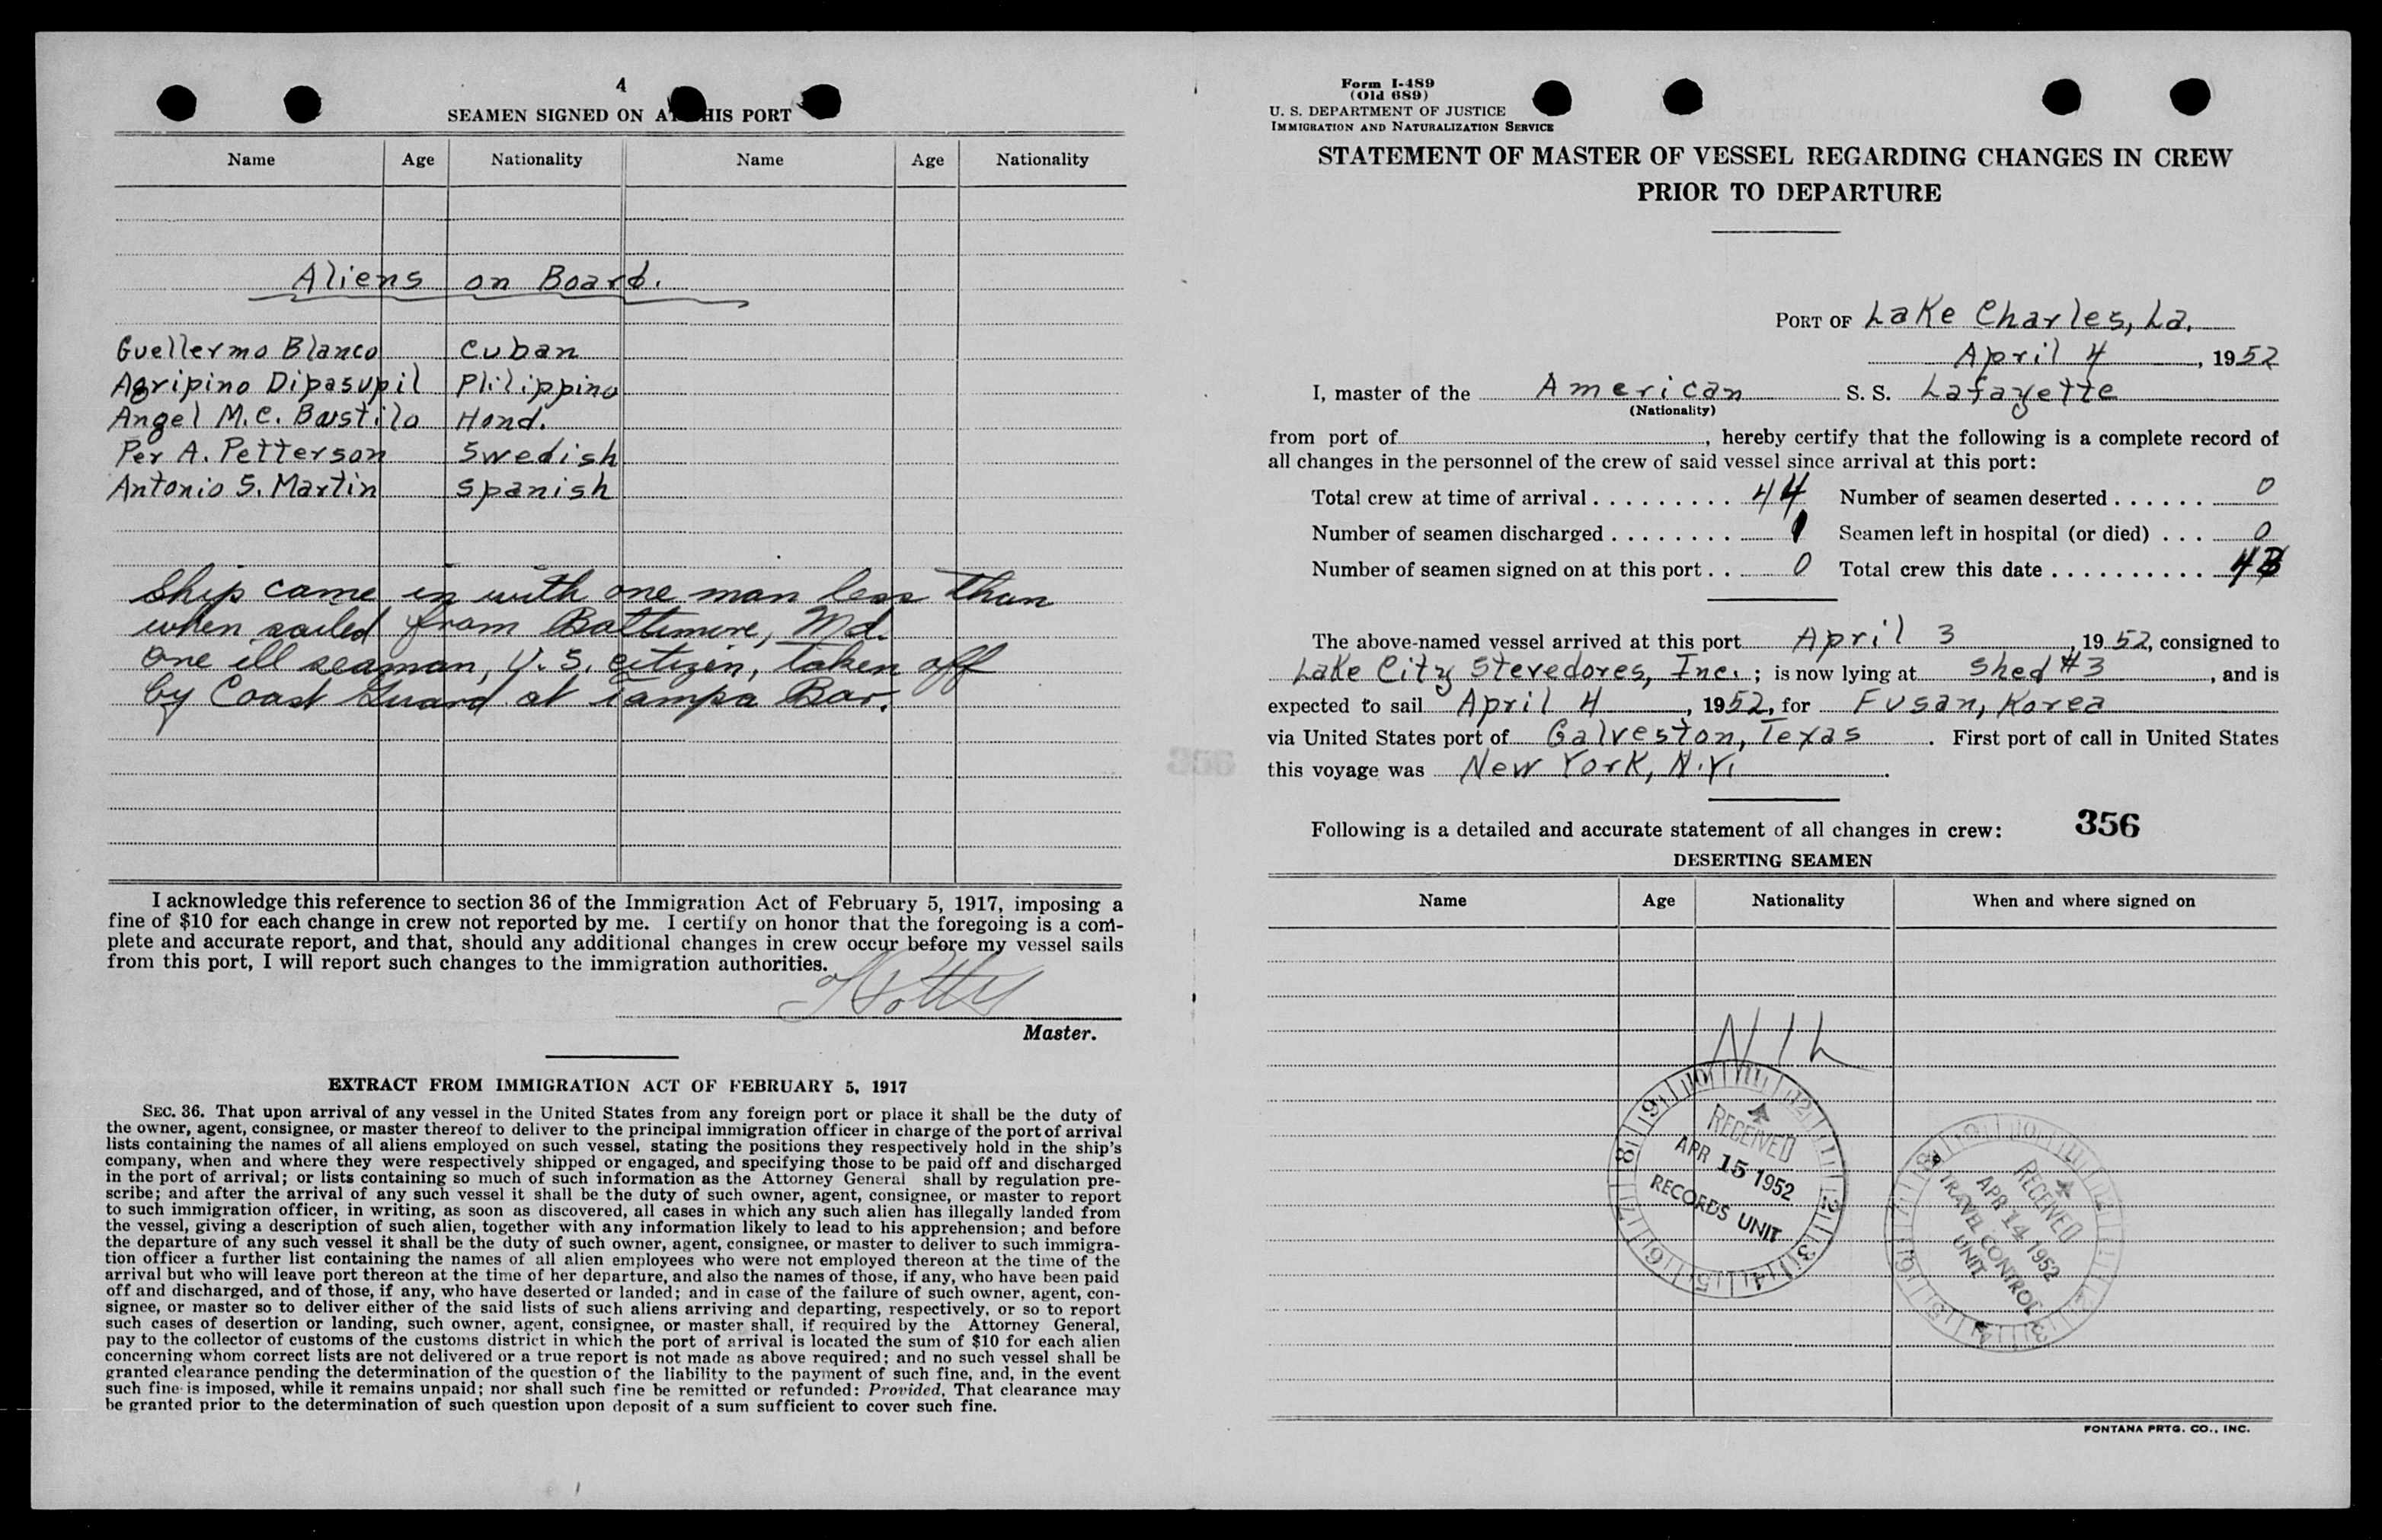 4
SEAMEN SIGNED ON AT THIS PORT
Name Age Nationality Name Age Nationality
Aliens on Board.
Guellermo Blanco Cuban
Agripino Dipasupil Philippino
Angel M.C. Bustilo Hond.
Per A. Petterson Swedish
Antonio S. Martin Spanish
Ship came in with one man less than
when sailed from Baltimore, Md.
One ill seaman, U.S. citizen, taken off
by Coast Guard at Tampa Bar.
I acknowledge this reference to section 36 of the Immigration Act of February 5, 1917, imposing a
fine of $10 for each change in crew not reported by me. I certify on honor that the foregoing is a com-
plete and accurate report, and that, should any additional changes in crew occur before my vessel sails
from this port, I will report such changes to the immigration authorities.
Master.
EXTRACT FROM IMMIGRATION ACT OF FEBRUARY 5, 1917
SEC. 36. That upon arrival of any vessel in the United States from any foreign port or place it shall be the duty of
the owner, agent, consignee, or master thereof to deliver to the principal immigration officer in charge of the port of arrival
lists containing the names of all aliens employed on such vessel, stating the positions they respectively hold in the ship's
company, when and where they were respectively shipped or engaged, and specifying those to be paid off and discharged
in the port of arrival; or lists containing so much of such information as the Attorney General shall by regulation pre-
scribe; and after the arrival of any such vessel it shall be the duty of such owner, agent, consignee, or master to report
to such immigration officer, in writing, as soon as discovered, all cases in which any such alien has illegally landed from
the vessel, giving a description of such alien, together with any information likely to lead to his apprehension; and before
the departure of any such vessel it shall be the duty of such owner, agent, consignee, or master to deliver to such immigra-
tion officer a further list containing the names of all alien employees who were not employed thereon at the time of the
arrival but who will leave port thereon at the time of her departure, and also the names of those, if any, who have been paid
off and discharged, and of those, if any, who have deserted or landed; and in case of the failure of such owner, agent, con-
signee, or master so to deliver either of the said lists of such aliens arriving and departing, respectively, or so to report
such cases of desertion or landing, such owner, agent, consignee, or master shall, if required by the Attorney General,
pay to the collector of customs of the customs district in which the port of arrival is located the sum of $10 for each alien
concerning whom correct lists are not delivered or a true report is not made as above required; and no such vessel shall be
granted clearance pending the determination of the question of the liability to the payment of such fine, and, in the event
such fine is imposed, while it remains unpaid; nor shall such fine be remitted or refunded: Provided, That clearance may
be granted prior to the determination of such question upon deposit of a sum sufficient to cover such fine.
Form I-489
(Old 689)
U. S. DEPARTMENT OF JUSTICE
IMMIGRATION AND NATURALIZATION SERVICE
STATEMENT OF MASTER OF VESSEL REGARDING CHANGES IN CREW
PRIOR TO DEPARTURE
PORT OF Lake Charles, La.
April 4, 1952
I, master of the American S. S. Lafayette
(Nationality)
from port of , hereby certify that the following is a complete record of
all changes in the personnel of the crew of said vessel since arrival at this port:
Total crew at time of arrival 44 Number of seamen deserted 0
Number of seamen discharged 1 Seamen left in hospital (or died) 0
Number of seamen signed on at this port 0 Total crew this date 43
The above-named vessel arrived at this port April 3, 1952, consigned to
Lake City Stevedores, Inc.; is now lying at Shed #3, and is
expected to sail April 4, 1952, for Fusan, Korea
via United States port of Galveston, Texas. First port of call in United States
this voyage was New York, N.Y.
Following is a detailed and accurate statement of all changes in crew: 356
DESERTING SEAMEN
Name Age Nationality When and where signed on
NIL
RECEIVED
APR 15 1952
RECORDS UNIT
RECEIVED
APR 14 1952
TRAVEL CONTROL
UNIT
FONTANA PRTG. CO., INC.